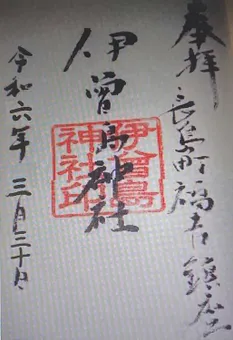 奉拝 長島町福吉鎮座
伊曾島神社
伊曾島
神社印
令和六年 三月三十日